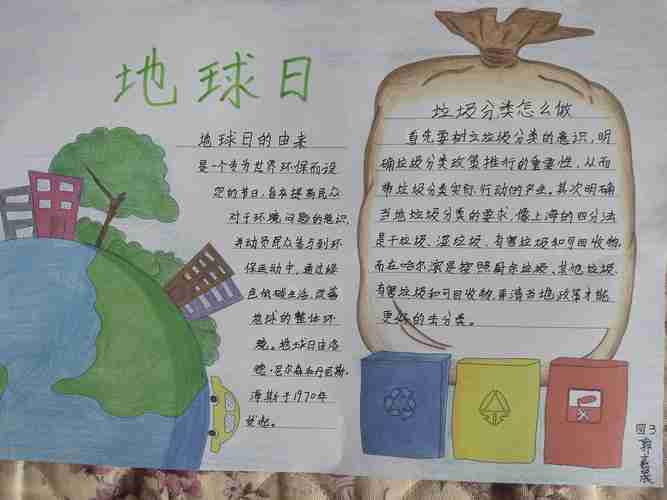 地球日
地球日的由来
是一个专为世界环保而设
定的节日,旨在提高民众
对于环境问题的意识,
并动员民众参与到环
保运动中,通过绿
色低碳生活,改善
地球的整体环
境。地球日由盖
德·尼尔森和丹尼斯·
海斯于1970年
发起。
垃圾分类怎么做
首先要树立垃圾分类的意识,明
确垃圾分类政策推行的重要性,从而
带垃圾分类实际行动的产生。其次明确
当地垃圾分类的要求,像上海的四分法
是干垃圾、湿垃圾、有害垃圾和可回收物,
而在哈尔滨是按照厨余垃圾、其他垃圾、
有害垃圾和可回收物,弄清当地政策才能
更好的去分类。